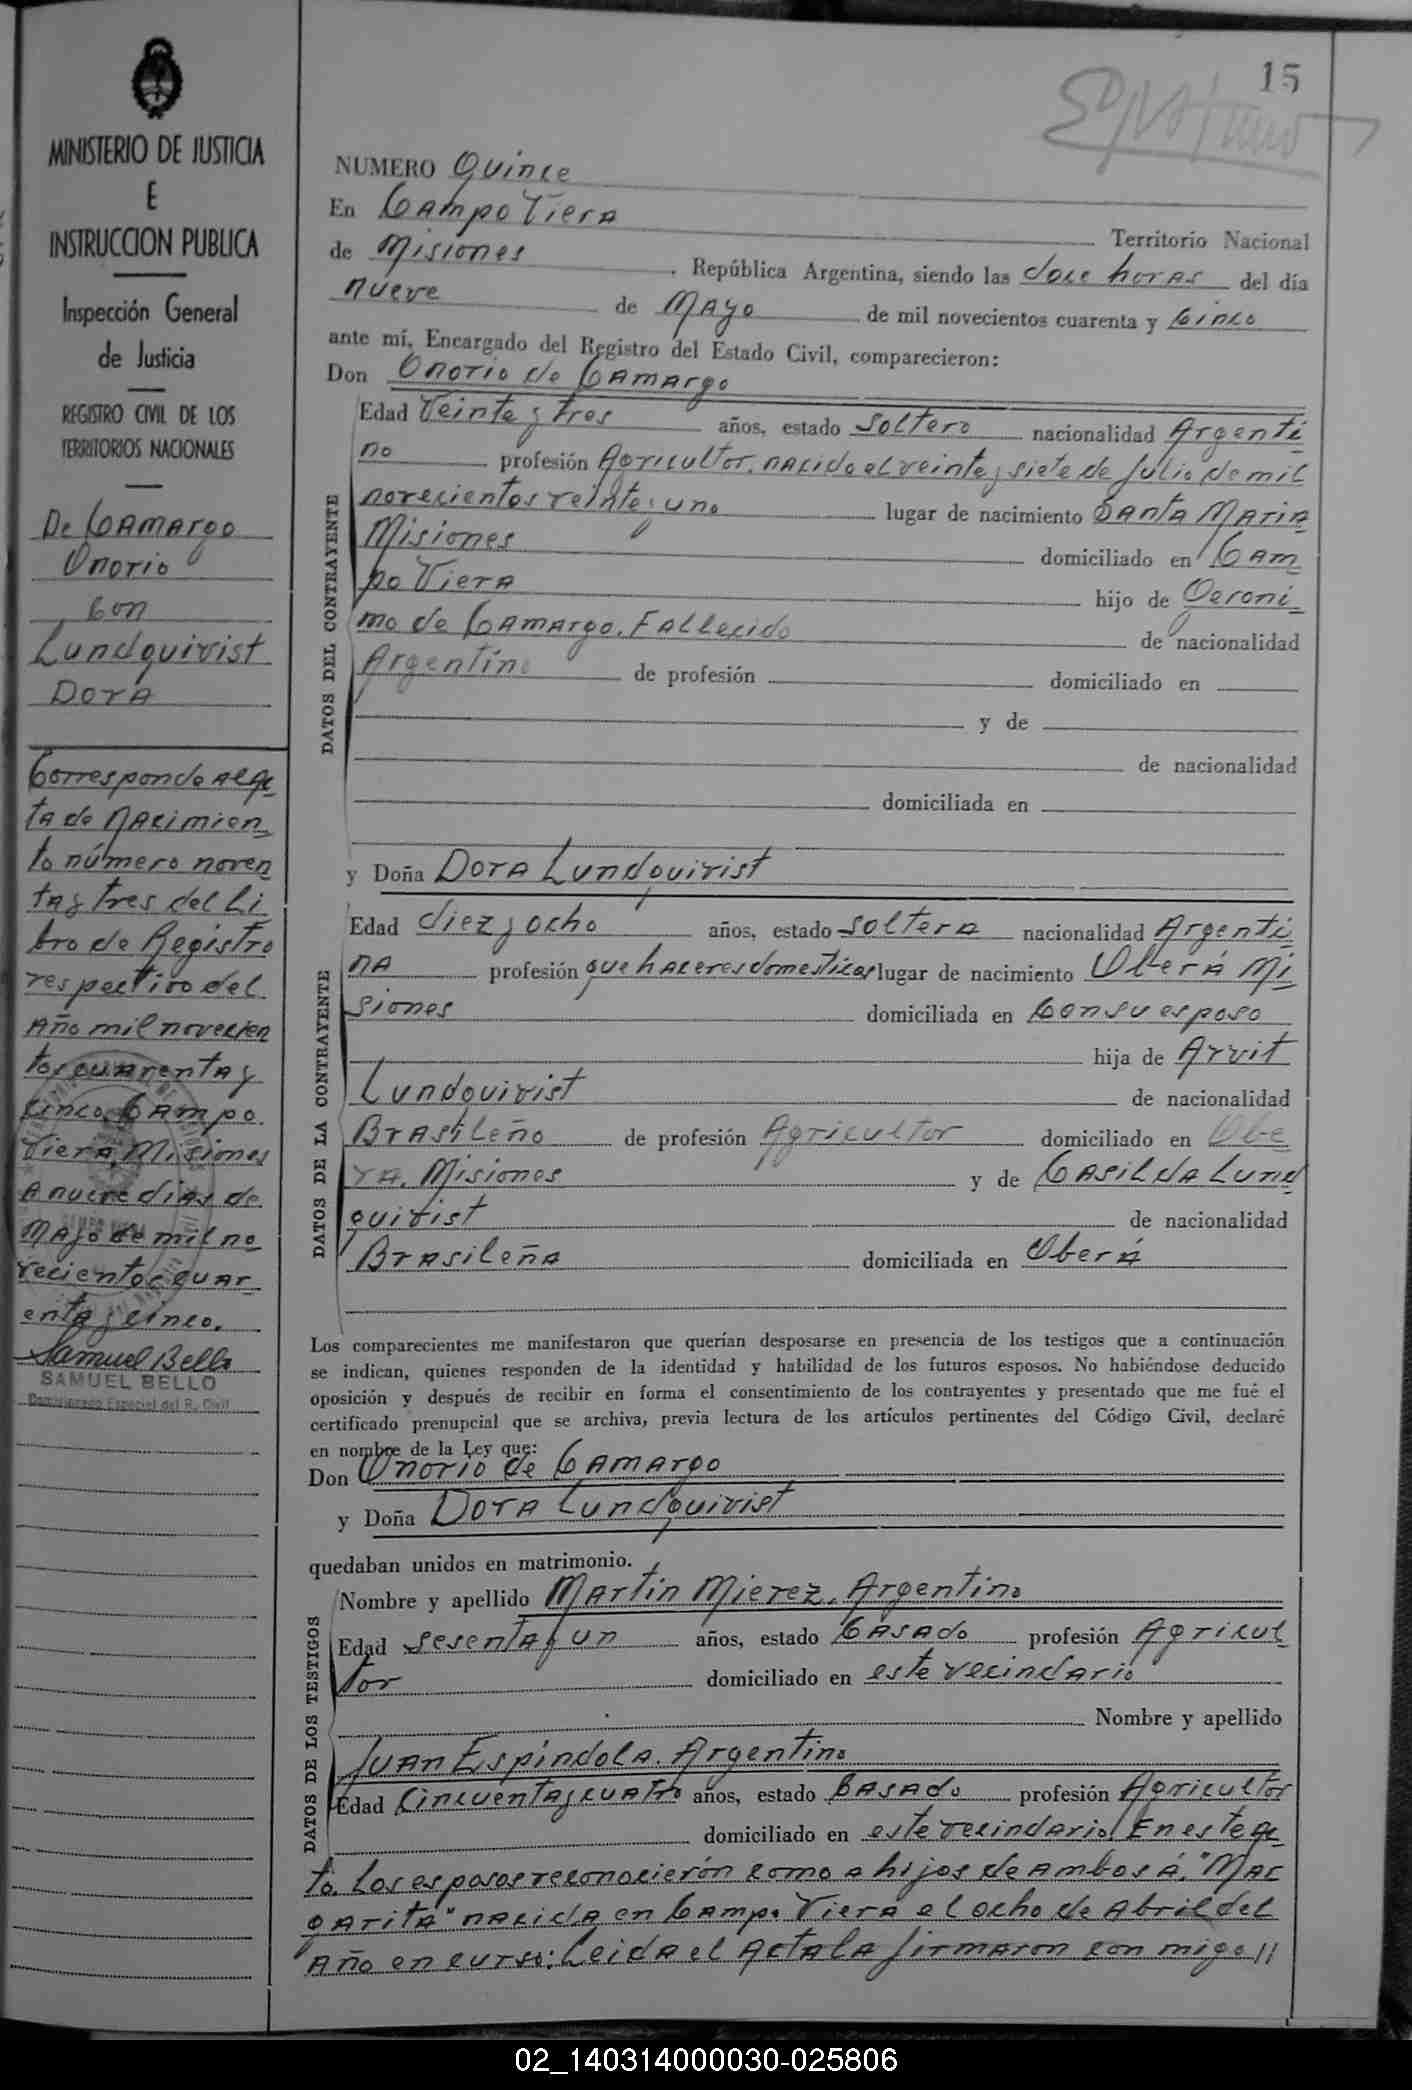 15
MINISTERIO DE JUSTICIA
E
INSTRUCCION PUBLICA
Inspección General
de Justicia
REGISTRO CIVIL DE LOS
TERRITORIOS NACIONALES
De Camargo
Onorio
con
Lundquivist
Dora
Corresponde al Ac
ta de Nacimien
to número noven
ta y tres del Li
bro de Registro
respectivo del
Año mil novecien
tos cuarenta y
cinco. Campo
Viera, Misiones
a nueve días de
Mayo de mil no
vecientos cuar
enta y cinco.
Samuel Bello
SAMUEL BELLO
Especial del R. Civil
NUMERO Quince
En Campo Viera Territorio Nacional
de Misiones. República Argentina, siendo las doce horas del día
nueve de Mayo de mil novecientos cuarenta y cinco
ante mí, Encargado del Registro del Estado Civil, comparecieron:
Don Onorio de Camargo
DATOS DEL CONTRAYENTE
Edad Veinte y tres años, estado Soltero nacionalidad Argenti
no profesión Agricultor, nacido el veinte y siete de Julio de mil
novecientos veinte y uno lugar de nacimiento Santa Maria
Misiones domiciliado en Cam
po Viera hijo de Geroni
mo de Camargo. Fallecido de nacionalidad
Argentino de profesión domiciliado en
y de
de nacionalidad
domiciliada en
y Doña Dora Lundquivist
DATOS DE LA CONTRAYENTE
Edad diez y ocho años, estado Soltera nacionalidad Argenti
na profesión quehaceres domesticos lugar de nacimiento Oberá Mi
siones domiciliada en con su esposo
hija de Arvit
Lundquivist de nacionalidad
Brasileño de profesión Agricultor domiciliado en Obe
rá. Misiones y de Casilda Lund
quivist de nacionalidad
Brasileña domiciliada en Oberá
Los comparecientes me manifestaron que querían desposarse en presencia de los testigos que a continuación
se indican, quienes responden de la identidad y habilidad de los futuros esposos. No habiéndose deducido
oposición y después de recibir en forma el consentimiento de los contrayentes y presentado que me fué el
certificado prenupcial que se archiva, previa lectura de los artículos pertinentes del Código Civil, declaré
en nombre de la Ley que:
Don Onorio de Camargo
y Doña Dora Lundquivist
quedaban unidos en matrimonio.
DATOS DE LOS TESTIGOS
Nombre y apellido Martín Mierez. Argentino
Edad sesenta y un años, estado Casado profesión Agricul
tor domiciliado en este vecindario
Nombre y apellido
Juan Espíndola. Argentino
Edad Cincuenta y cuatro años, estado Casado profesión Agricultor
domiciliado en este vecindario. En este Ac
to. Los esposos reconocierón como a hijos de ambos á. "Mar
garita" nacida en Campo Viera el ocho de Abril del
Año en curso: Leida el Acta la firmaron con migo //
02_140314000030-025806